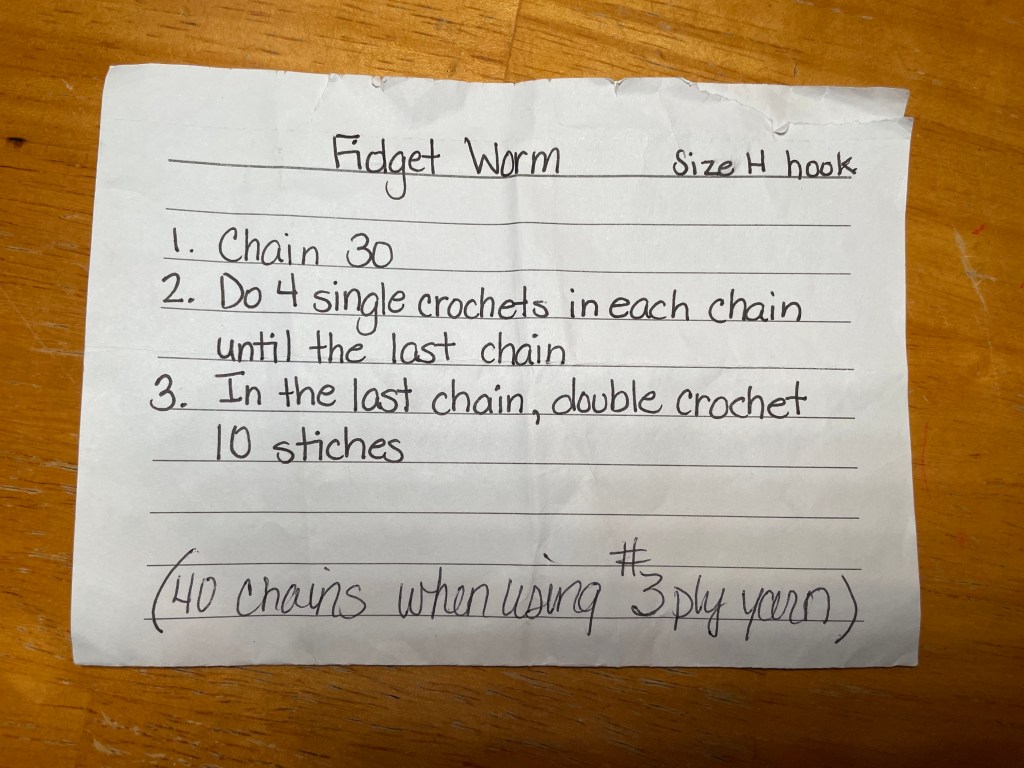 Fidget Worm Size H hook
1. Chain 30
2. Do 4 single crochets in each chain
until the last chain
3. In the last chain, double crochet
10 stiches
(40 chains when using #3 ply yarn)